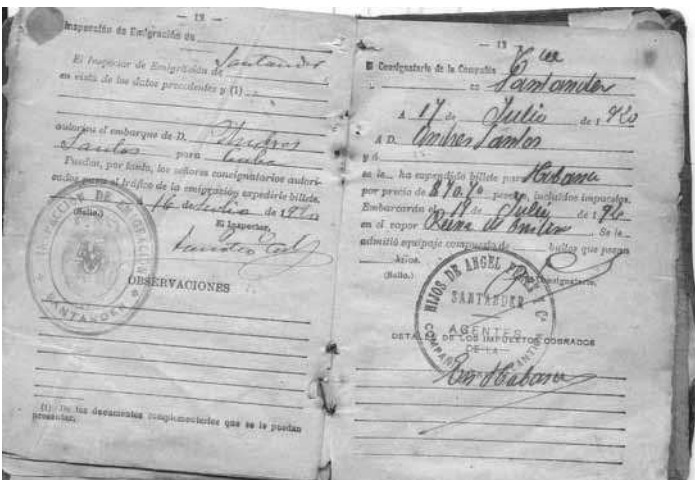 — 12 —
Inspección de Emigración de
El Inspector de Emigración de Santander
en vista de los datos precedentes y (1)
autoriza el embarque de D. Andres
Santos para Cuba
Pueden, por tanto, los señores consignatarios autori-
zados para el tráfico de la emigración expedirle billete.
A 16 de Julio de 1920
(Sello.) El Inspector,
INSPECCIÓN DE EMIGRACIÓN
SANTANDER
OBSERVACIONES
(1) De los documentos complementarios que se le puedan
presentar.
— 13 —
El Consignatario de la Compañía
en Santander
A 17 de Julio de 1920
A D. Andres Santos
y á
se le ha expedido billete para Habana
por precio de pesetas, incluídos impuestos.
Embarcarán el 19 de Julio de 192
en el vapor Reina Se le
admitió equipaje compuesto de bultos que pesan
kilos.
(Sello.) Consignatario,
HIJOS DE ANGEL Y Cª
SANTANDER
AGENTES
DE LA
DETALLE DE LOS IMPUESTOS COBRADOS
Habana